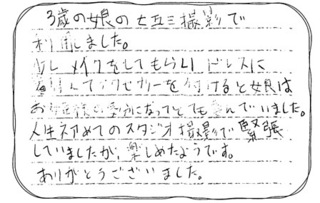 3歳の娘の七五三撮影で
利用しました。
少しメイクをしてもらい ドレスに
アクセサリーを付けると娘は
お姫様気分になってとても喜んでいました。
人生初めてのスタジオ撮影で緊張
していましたが、楽しめたようです。
ありがとうございました。